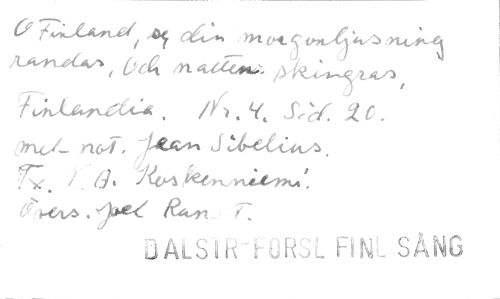 O Finland, se din morgonljusning
randas, och natten skingras,
Finlandia. Nr. 4. Sid. 20.
mel- not. Jean Sibelius.
Tx. V. A. Koskenniemi.
Övers. Joel Run T.
DALSTR-FORSL FINL SÅNG